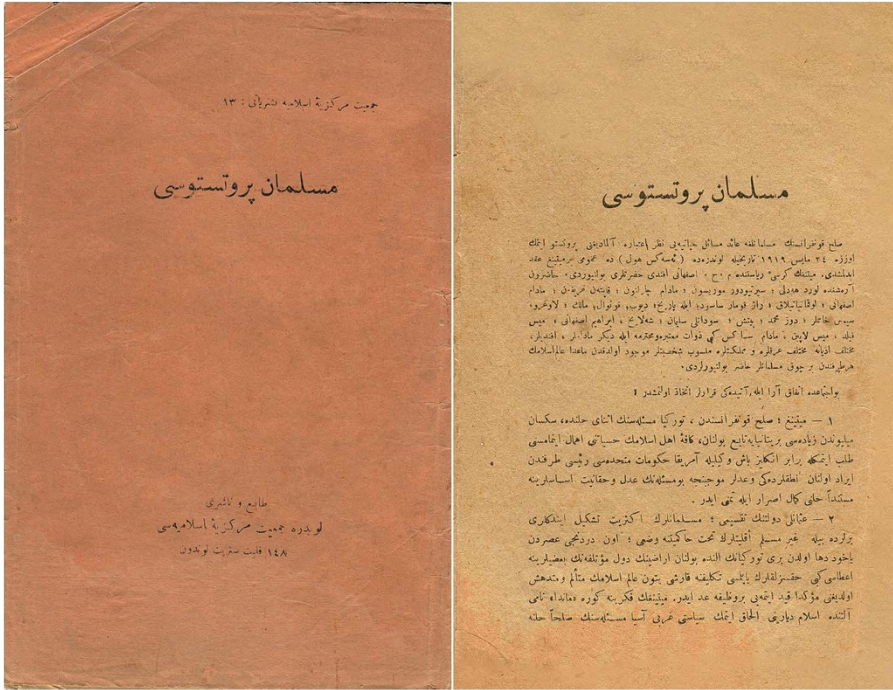 جمعیت مركزیهٔ اسلامیه نشریاتی : ۱۳
مسلمان پروتستوسی
طابع و ناشری
لوندره جمعیت مركزیهٔ اسلامیه‌سی
۱٤۸ فلیت ستریت لوندون
مسلمان پروتستوسی
صلح قونفرانسنك مسلمانلغه عائد مسائل حیاتیه‌یی نظر اعتباره آلمادیغنی پروتستو ایتمك
اوزره ۲٤ مایس ۱۹۱۹ تاریخیله لوندره‌ده ( ئه‌سه‌كس هول ) ده عمومی بر میتینغ عقد
ایدلشدی. میتنغك كرسیٔ ریاستنده م . ح . اصفهانی افندی حضرتلری بولنیوردی. حاضرون
آره‌سنده لورد هدلی ؛ سیرتیودور موریسون ؛ مادام ؛ مادام
اصفهانی ؛
محمد ؛ سودانلی سلیمان ؛ ابراهیم اصفهانی ، میس
فیلد ، میس مادام كبی ذوات معتبره و محترمه ایله دیكر ماداملر ، افندیلر،
مختلف ادیانه مختلف عرقلره و مملكتلره منسوب شخصیتلر موجود اولدقدن ماعدا عالم اسلامك
هر طرفندن بر چوق مسلمانلر حاضر بولنیورلردی.
بو اجتماعده اتفاق آرا ایله آتیده‌كی قرارلر اتخاذ اولنمشدر :
۱ — میتینغ ؛ صلح قونفرانسندن ، توركیا مسئله‌سنك اثنای حلنده، سكسان
میلیوندن زیاده‌سی بریتانیایه تابع بولنان، كافهٔ اهل اسلامك حسیاتنی اهمال ایتمامسنی
طلب ایتمكله برابر انكلیز باش وكیلیله آمریقا حكومات متحده‌سی رئیسی طرفندن
ایراد اولنان نطقلرده‌كی وعدلر موجبنجه بومسئله‌نك عدل وحقانیت اساسلرینه
مستنداً حلنی كمال اصرار ایله تمنی ایدر .
۲ — عثمانلی دولتنك تقسیمی ؛ مسلمانلرك اكثریت تشكیل ایتدكلری
یرلرده بیله غیر مسلم اقلیتلرك تحت حاكمیتنه وضعی ؛ اون دردنجی عصردن
یاخود دها اولدن بری توركیانك النده بولنان اراضینك دول مؤتلفه‌نك بعضیلرینه
اعطاسی كبی حقسزلقلرك یاپلمسی تكلیفنه قارشی بتون عالم اسلامك متألم ومدهش
اولدیغنی مؤكداً قید ایتمه‌یی بر وظیفه عد ایدر. میتینغك فكرینه كوره «ماندا» نامی
آلتنده اسلام دیارینی الحاق ایتمك سیاستی غربی آسیا مسئله‌سنك صلحاً حلنه